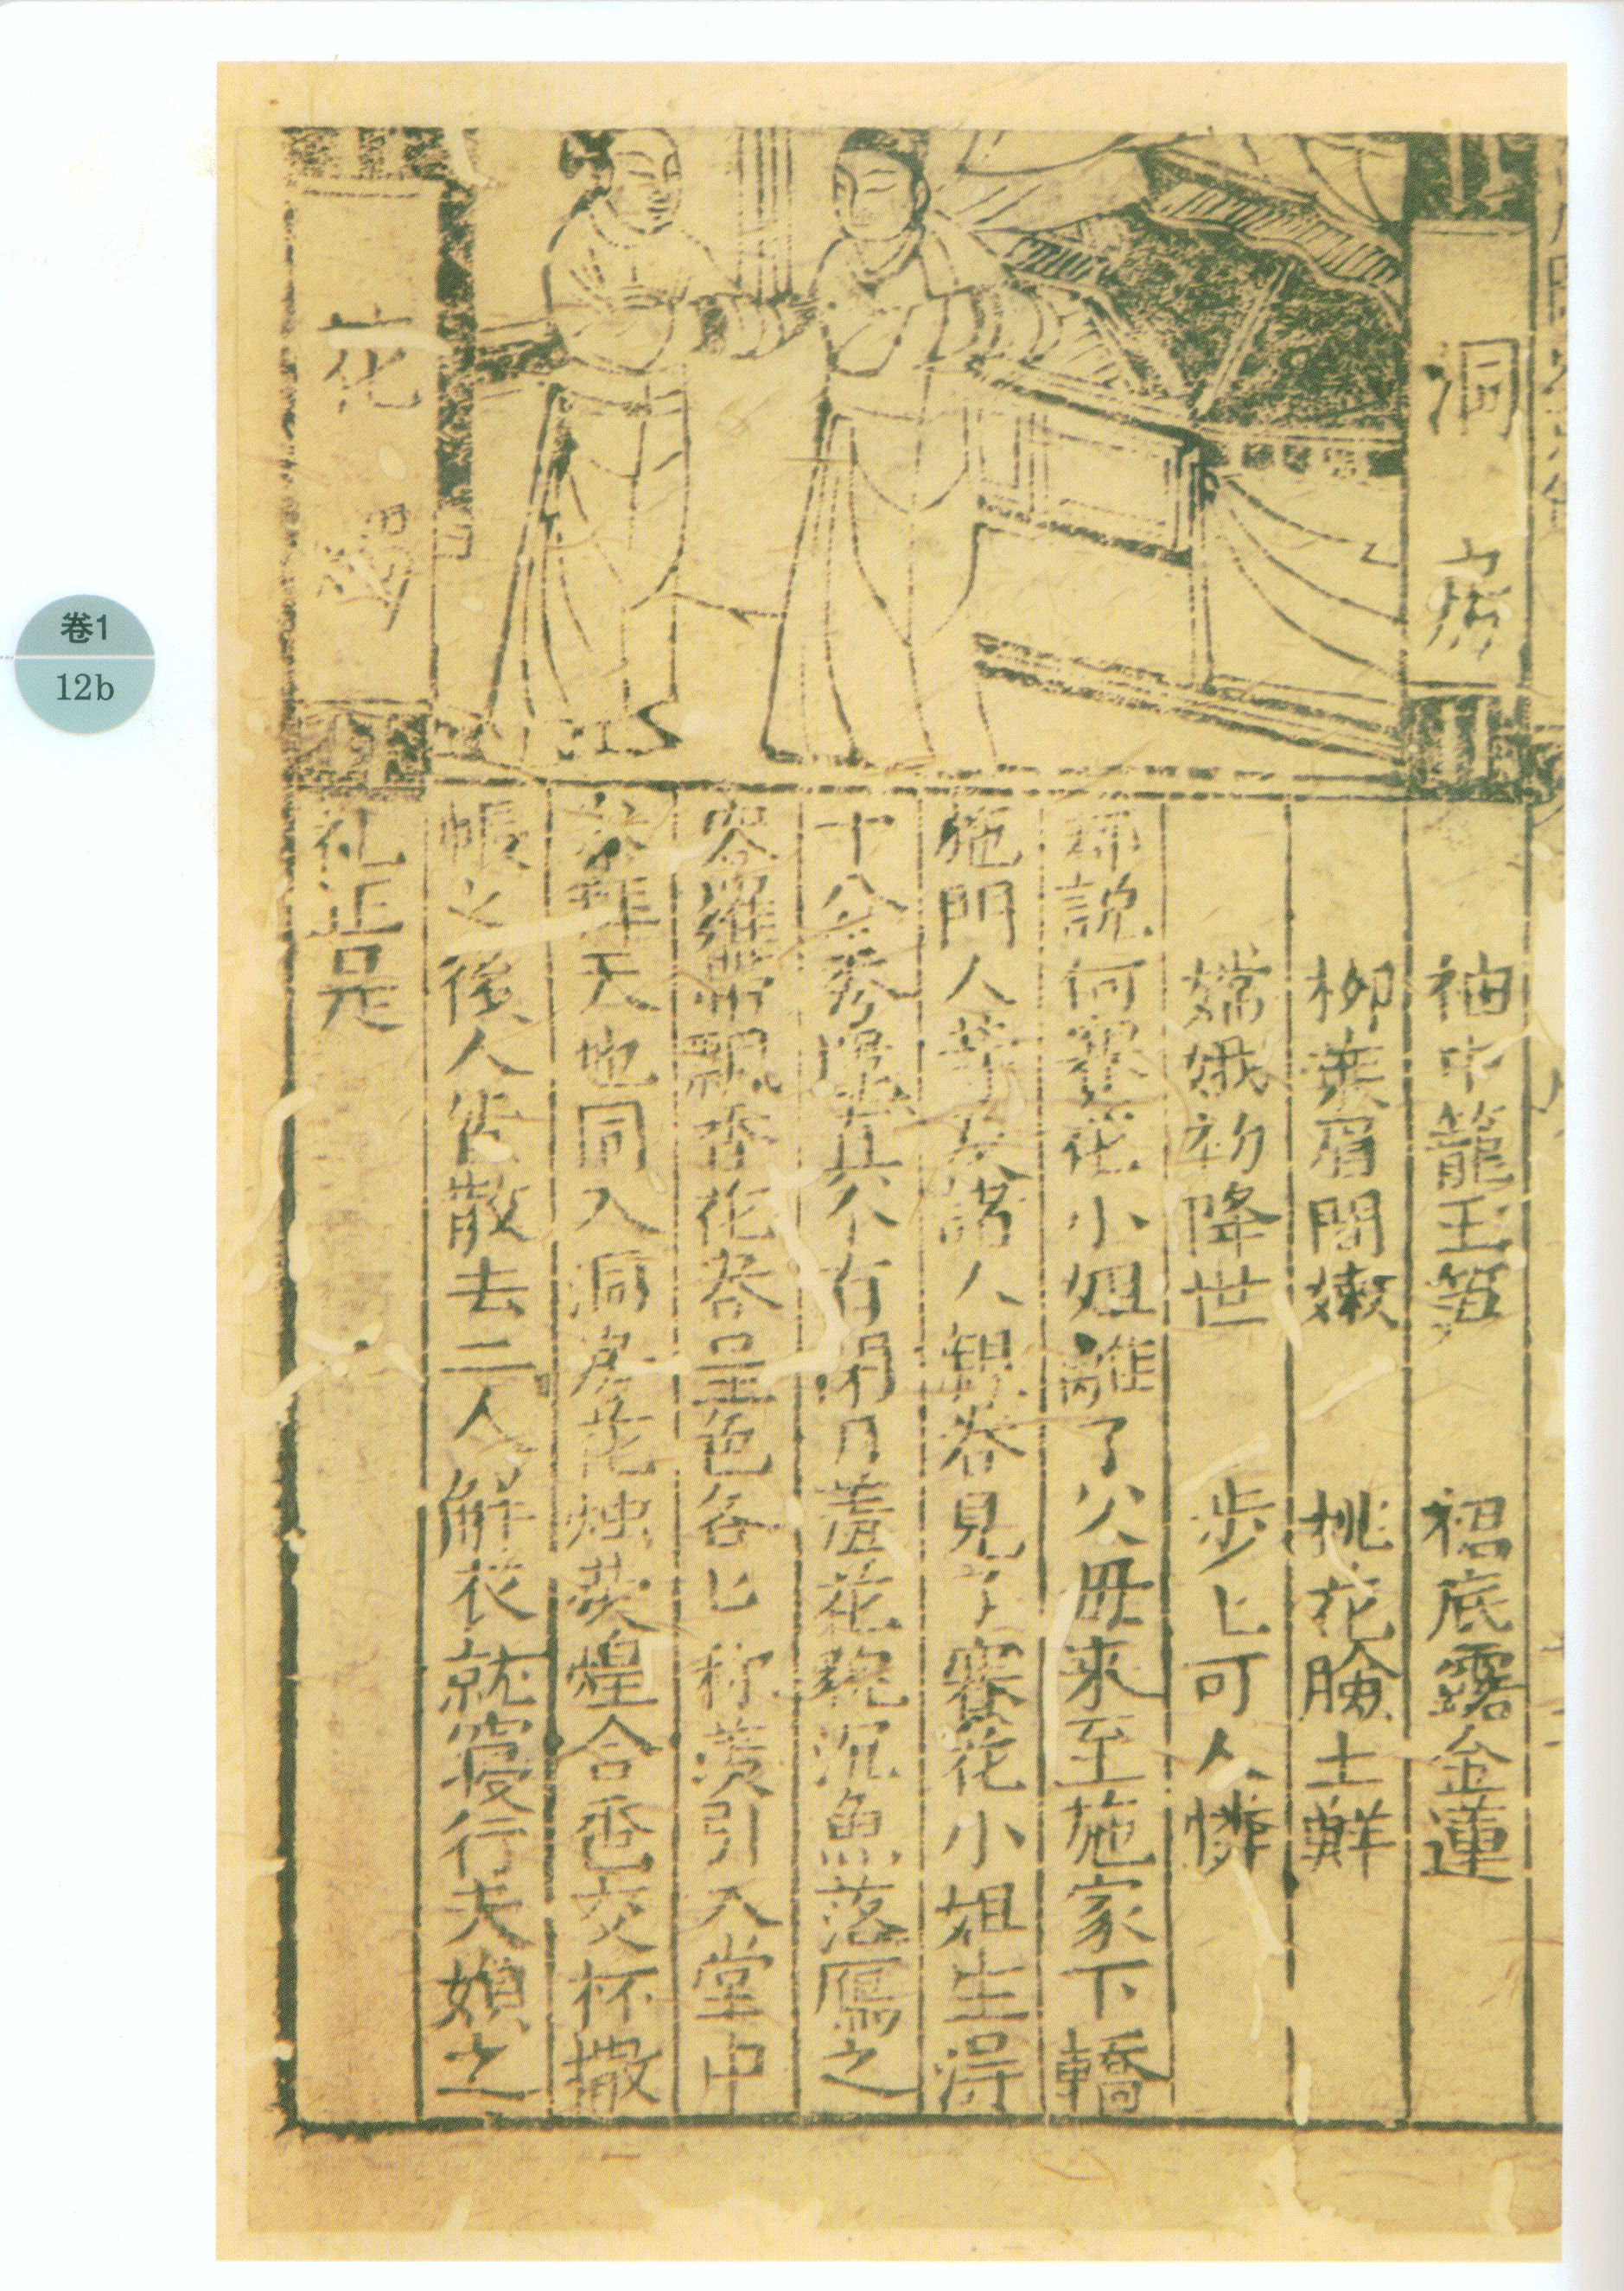 卷1
12b
洞房
花燭
袖中籠玉笋　裙底露金蓮
柳葉眉間嫩　桃花臉上鮮
嫦娥初降世　步匕可人憐
話說何賽花小姐離了父毋來至施家下轎
施門人等與諸人觀看見了賽花小姐生得
十分秀麗真个有閉月羞花貌沉魚落鴈之
容羅帶飄香花容呈色各匕称羡引入堂中
參拜天地同入洞房花烛熒煌合卺交杯撒
帳之後人皆散去二人解衣就寢行夫婦之
礼正是